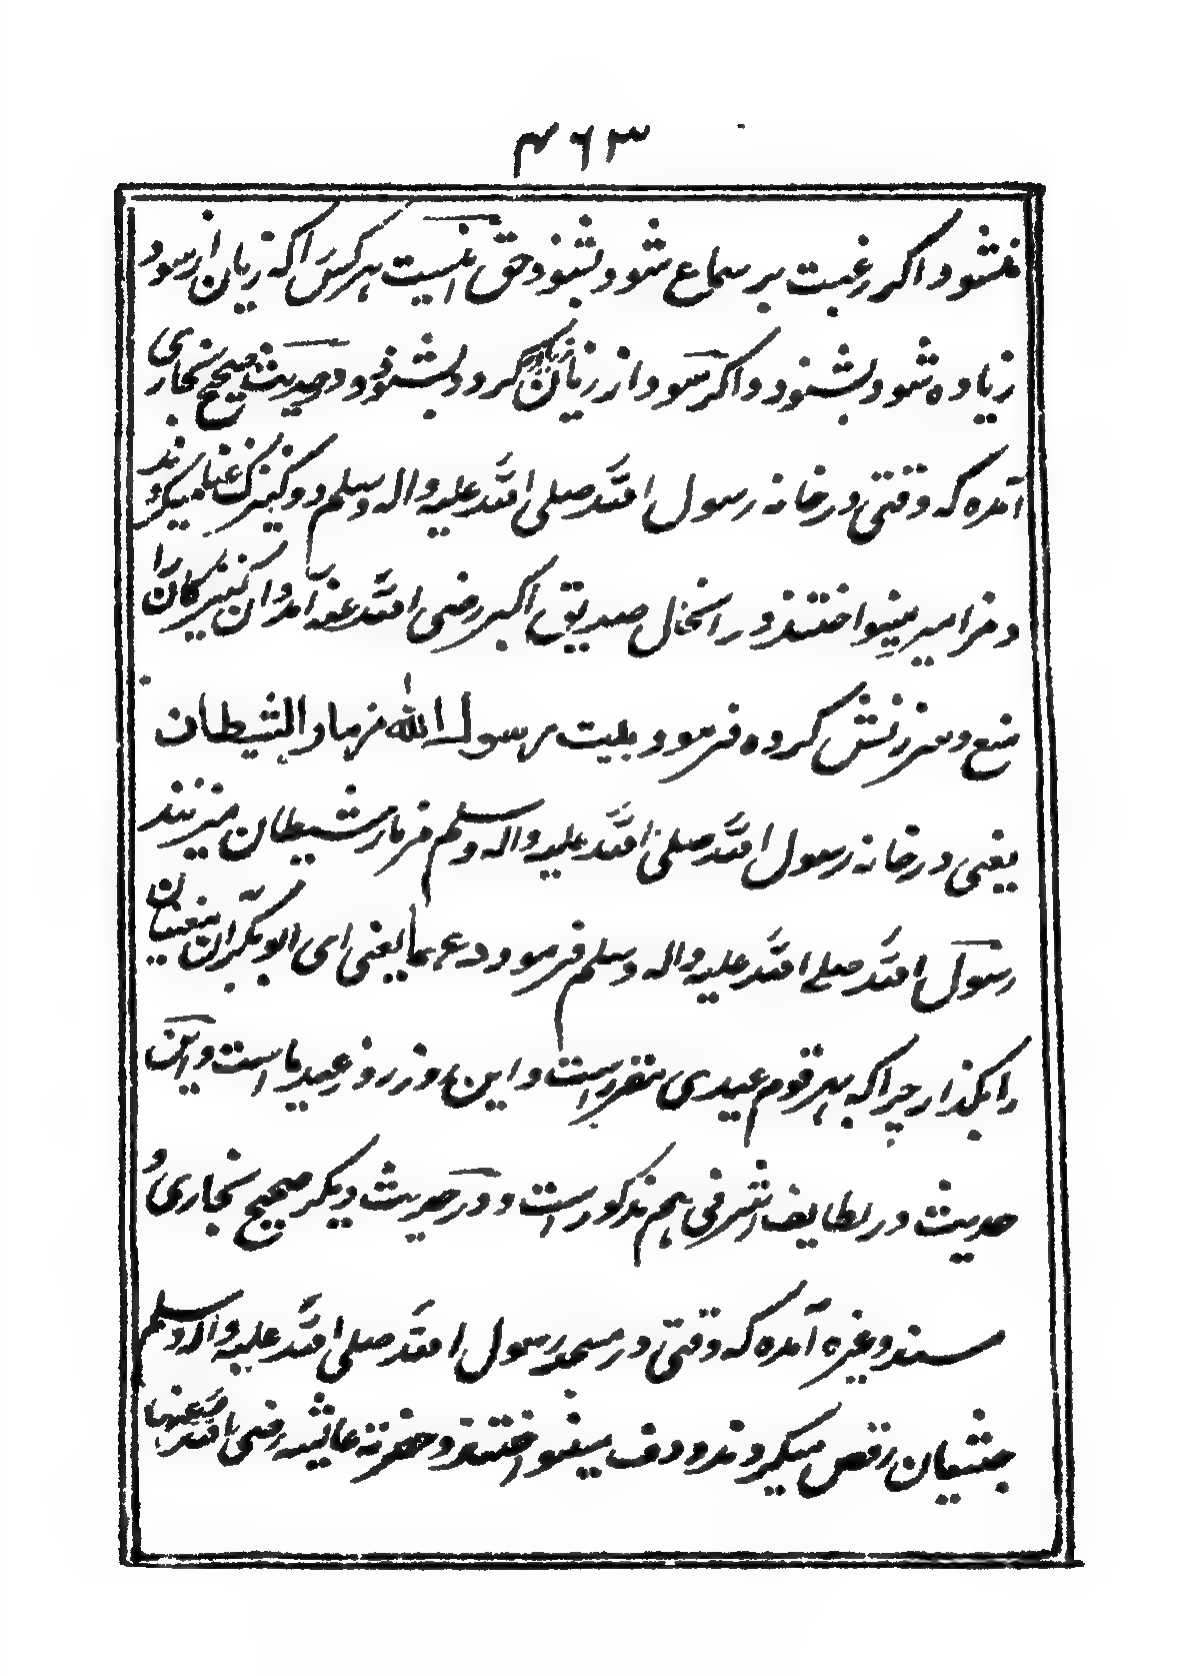 ۴۶۳
نشنود و اکر رغبت بر سماع شود بشنود حق اینست هر کس را که زیان از سود
زیاده شود بشنود و اکر سود از زیان زیاده کردد بشنود و در حدیث صحیح بخاری
آمده که وقتی در خانه رسول الله صلی الله علیه واله وسلم دو کنیزک غنا میکردند
و مزامیر مینواختند در انحال صدیق اکبر رضی الله عنه آمد و ان کنیزکان را
منع و سرزنش کرده فرمود بیت رسول الله مزمار الشیطان
یعنی در خانه رسول الله صلی الله علیه واله وسلم مزمار شیطان میزنند
رسول الله صلی الله علیه واله وسلم فرمود دعهما یعنی ای ابو بکر ان مغنیان
را بگذار چرا که هر قوم عیدی مقرر است و این روز روز عید ما است و این
حدیث در لطایف اشرفی هم مذکور است و در حدیث دیکر صحیح بخاری و
مسند وغیره آمده که وقتی در مسجد رسول الله صلی الله علیه واله وسلم
حبشیان رقص میکردند و دف مینواختند و حضرته عایشه رضی الله عنها